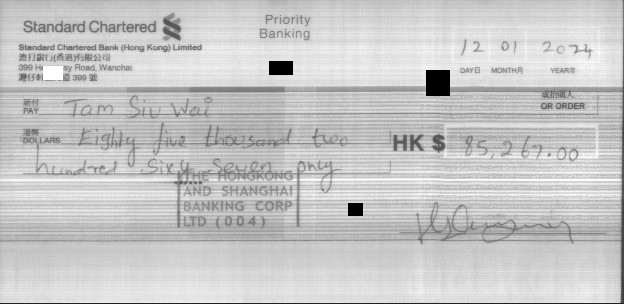 Standard Chartered
Priority
Banking
Standard Chartered Bank (Hong Kong) Limited
渣打銀行(香港)有限公司
399 Road, Wanchai
灣仔 道 399 號
12 01 2024
DAY日 MONTH月 YEAR年
祈付
PAY Tam Siu Wai
或持票人
OR ORDER
港幣
DOLLARS Eighty five thousand two
hundred Sixty Seven only
HK $ 85,267.00
THE HONGKONG
AND SHANGHAI
BANKING CORP
LTD (004)